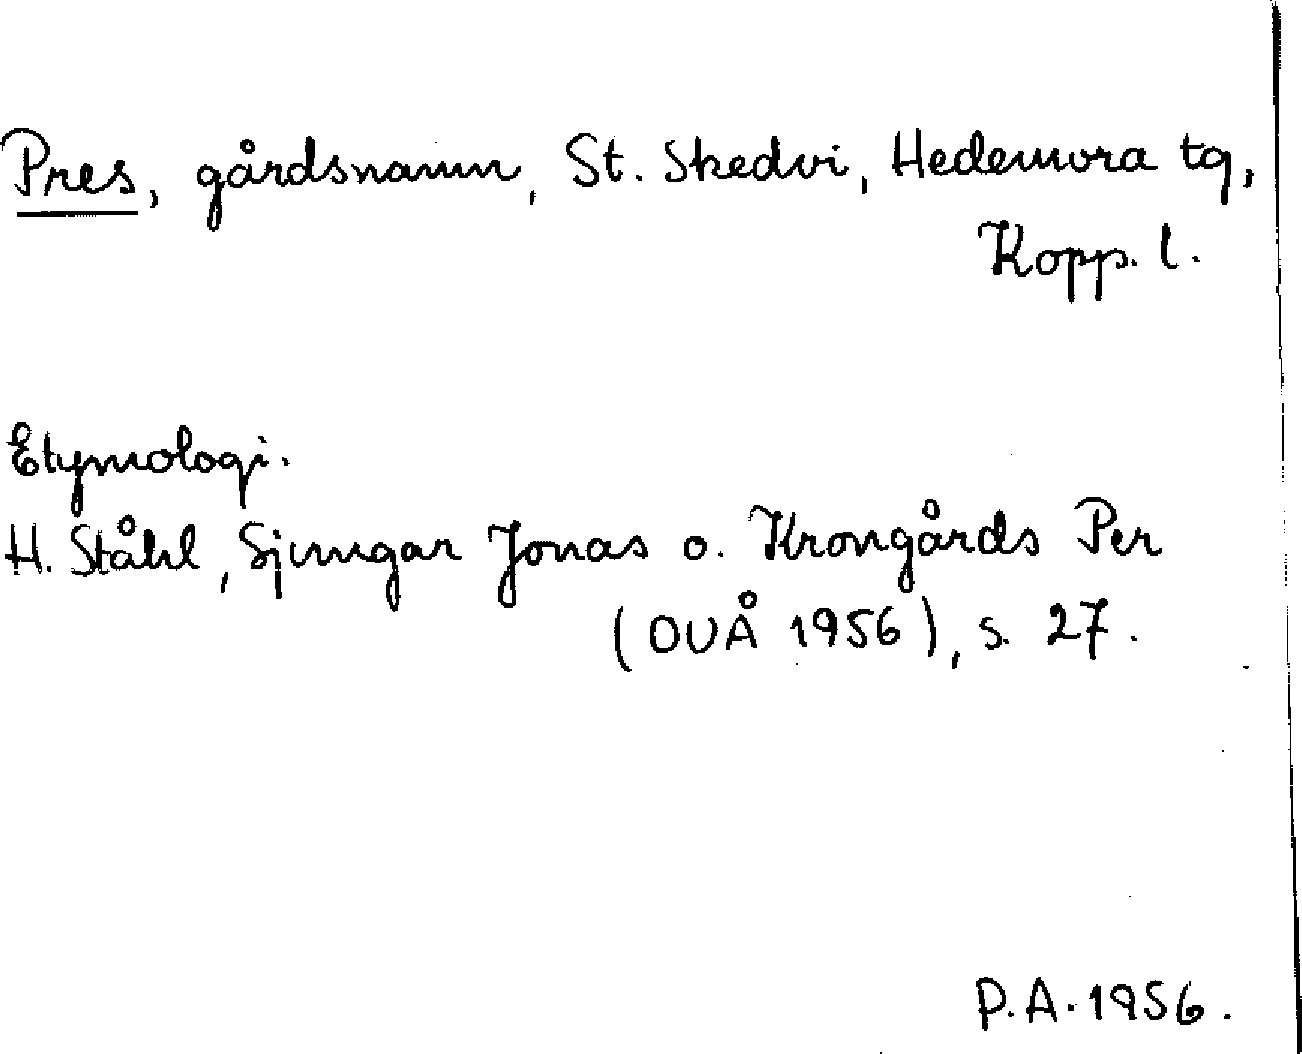 Pres, gårdsnamn, St. Skedvi, Hedemora tg,
Kopp. l.
Etymologi.
H. Ståhl, Sjungar Jonas o. Krongårds Per
(OUÅ 1956), s. 27.
P.A. 1956.